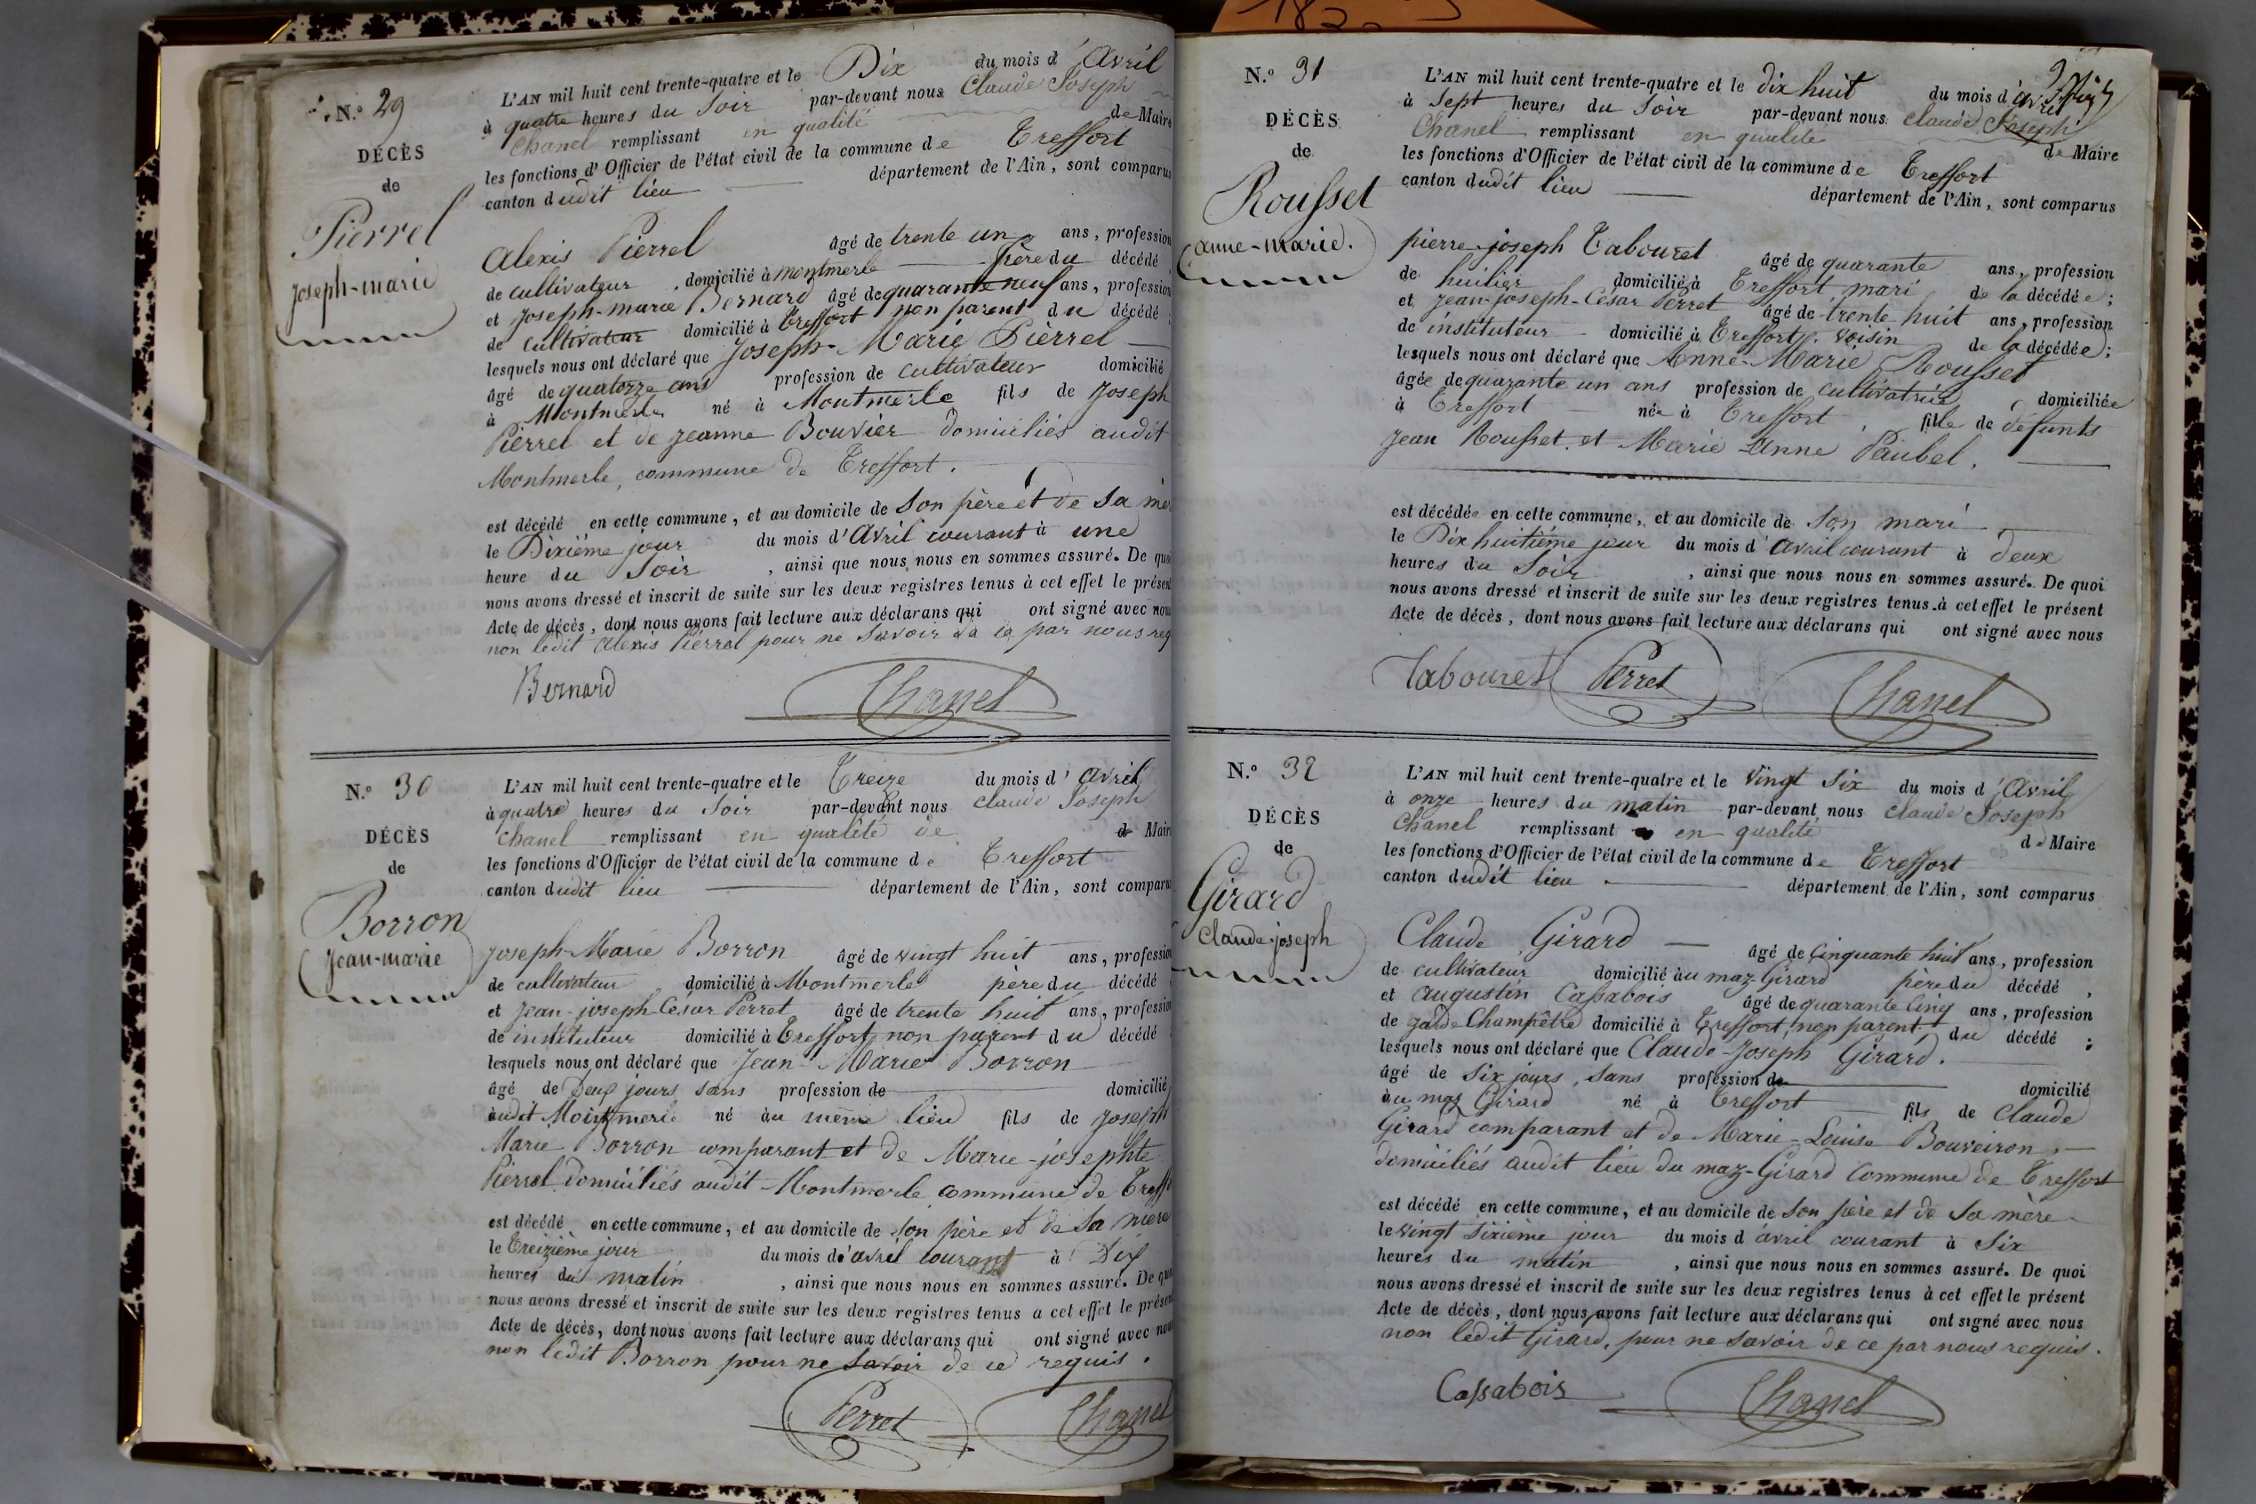 N.° 29
DÉCÈS
de
Pierrel
joseph-marie
L'AN mil huit cent trente-quatre et le Dix du mois d'Avril
à quatre heures du Soir par-devant nous Claude Joseph
Chanel remplissant en qualité de Maire
les fonctions d'Officier de l'état civil de la commune de Treffort
canton dudit lieu département de l'Ain, sont comparus
Alexis Pierrel âgé de trente un ans, profession
de cultivateur, domicilié à Montmerle frère du décédé
et Joseph-marie Bernard âgé de quarante neuf ans, profession
de Cultivateur domicilié à Treffort non parent du décédé;
lesquels nous ont déclaré que Joseph-Marie Pierrel
âgé de quatorze ans profession de cultivateur domicilié
à Montmerle né à Montmerle fils de Joseph
Pierrel et de jeanne Bouvier domiciliés audit
Montmerle, commune de Treffort.
est décédé en cette commune, et au domicile de son père et de sa mè
le Dixième jour du mois d'Avril courant à une
heure du Soir, ainsi que nous nous en sommes assuré. De quoi
nous avons dressé et inscrit de suite sur les deux registres tenus à cet effet le présent
Acte de décès, dont nous avons fait lecture aux déclarans qui ont signé avec nous
non ledit Alexis Pierrel pour ne savoir de ce par nous req
Bernard Chanel
N.° 30
DÉCÈS
de
Borron
Jean-marie
L'AN mil huit cent trente-quatre et le Treize du mois d'Avril
à quatre heures du Soir par-devant nous Claude Joseph
Chanel remplissant en qualité de de Maire
les fonctions d'Officier de l'état civil de la commune de Treffort
canton dudit lieu département de l'Ain, sont comparus
Joseph-Marie Borron âgé de vingt huit ans, profession
de cultivateur domicilié à Montmerle père du décédé
et Jean-joseph-César Perret âgé de trente huit ans, profession
de instituteur domicilié à Treffort non parent du décédé
lesquels nous ont déclaré que Jean-Marie Borron
âgé de Deux jours sans profession de domicilié
audit Montmerle né au même lieu fils de Joseph
Marie Borron comparant et de Marie-josephte
Pierrel domiciliés audit Montmerle commune de Treff
est décédé en cette commune, et au domicile de son père et de sa mère
le Treizième jour du mois de'avril courant à Dix
heures du matin, ainsi que nous nous en sommes assuré. De quoi
nous avons dressé et inscrit de suite sur les deux registres tenus à cet effet le présent
Acte de décès, dont nous avons fait lecture aux déclarans qui ont signé avec nous
non ledit Borron pour ne savoir de ce requis.
Perret Chanel
N.° 31
DÉCÈS
de
Rousset
anne-marie.
L'AN mil huit cent trente-quatre et le dix huit du mois d'avril
à sept heures du Soir par-devant nous Claude Joseph
Chanel remplissant en qualité de Maire
les fonctions d'Officier de l'état civil de la commune de Treffort
canton dudit lieu département de l'Ain, sont comparus
pierre-joseph Tabouret âgé de quarante ans, profession
de huilier domicilié à Treffort mari de la décédée;
et Jean-joseph-César Perret âgé de trente huit ans, profession
de instituteur domicilié à Treffort, voisin de la décédée;
lesquels nous ont déclaré que Anne-Marie Rousset
âgée de quarante un ans profession de cultivatrice domiciliée
à Treffort née à Treffort, fille de défunts
Jean Rousset et Marie Anne Paubel.
est décédée en cette commune, et au domicile de son mari
le Dix huitième jour du mois d'avril courant à Deux
heures du Soir, ainsi que nous nous en sommes assuré. De quoi
nous avons dressé et inscrit de suite sur les deux registres tenus à cet effet le présent
Acte de décès, dont nous avons fait lecture aux déclarans qui ont signé avec nous
Tabouret Perret Chanel
N.° 32
DÉCÈS
de
Girard
Claude-joseph
L'AN mil huit cent trente-quatre et le Vingt Six du mois d'Avril
à onze heures du matin par-devant nous Claude Joseph
Chanel remplissant en qualité de Maire
les fonctions d'Officier de l'état civil de la commune de Treffort
canton dudit lieu département de l'Ain, sont comparus
Claude Girard âgé de Cinquante huit ans, profession
de cultivateur domicilié au maz-Girard père du décédé,
et Augustin Cassabois âgé de quarante Cinq ans, profession
de garde Champêtre domicilié à Treffort, non parent du décédé;
lesquels nous ont déclaré que Claude-Joseph Girard.
âgé de six jours, sans profession de domicilié
au maz Girard né à Treffort fils de Claude
Girard comparant et de Marie-Louise Bouveiron,
domiciliés audit lieu du maz-Girard Commune de Treffort
est décédé en cette commune, et au domicile de son père et de sa mère
le vingt sixième jour du mois d'avril courant à Six
heures du matin, ainsi que nous nous en sommes assuré. De quoi
nous avons dressé et inscrit de suite sur les deux registres tenus à cet effet le présent
Acte de décès, dont nous avons fait lecture aux déclarans qui ont signé avec nous
non ledit Girard, pour ne savoir de ce par nous requis.
Cassabois Chanel